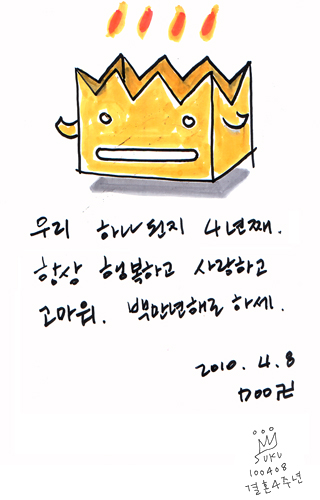 우리 하나된지 4년째.
항상 행복하고 사랑하고
고마워. 백만년해로 하세.
2010. 4. 8
SUKU
100408
결혼4주년